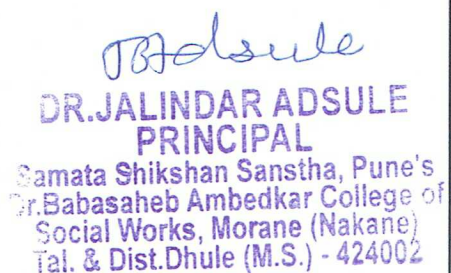 JBAdsule
DR.JALINDAR ADSULE
PRINCIPAL
Samata Shikshan Sanstha, Pune's
Dr.Babasaheb Ambedkar College of
Social Works, Morane (Nakane)
Tal. & Dist.Dhule (M.S.) - 424002